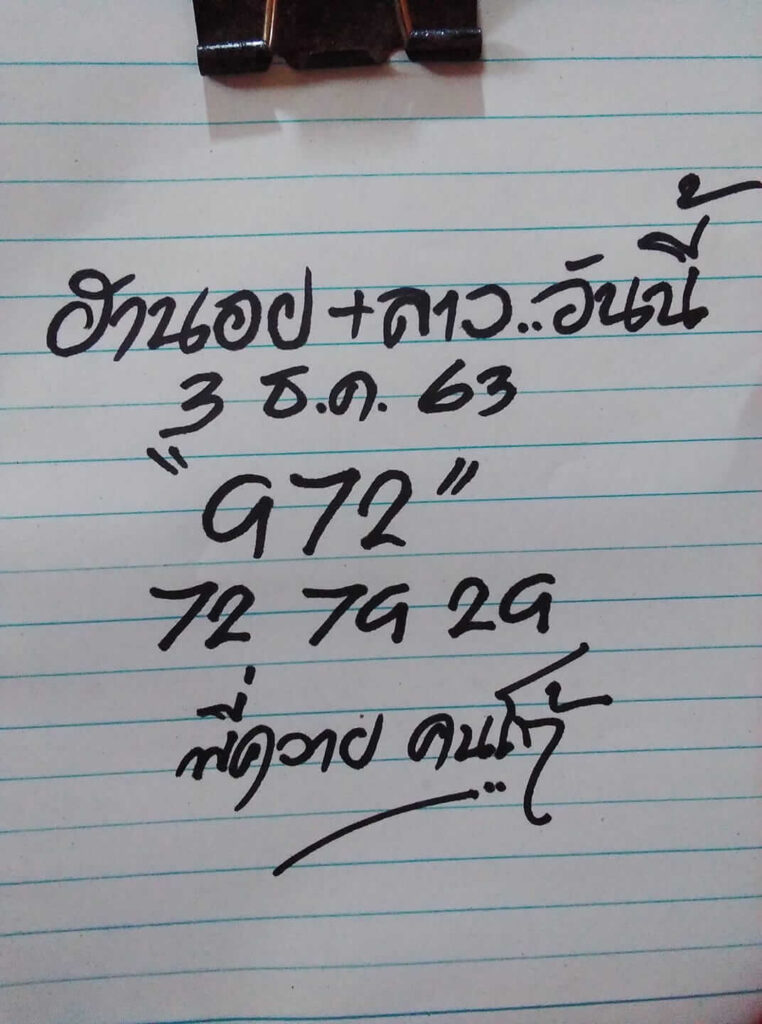 ฮานอย + ลาว.. วันนี้
3 ธ.ค. 63
"972"
72 79 29
พี่ควาย คนโก้